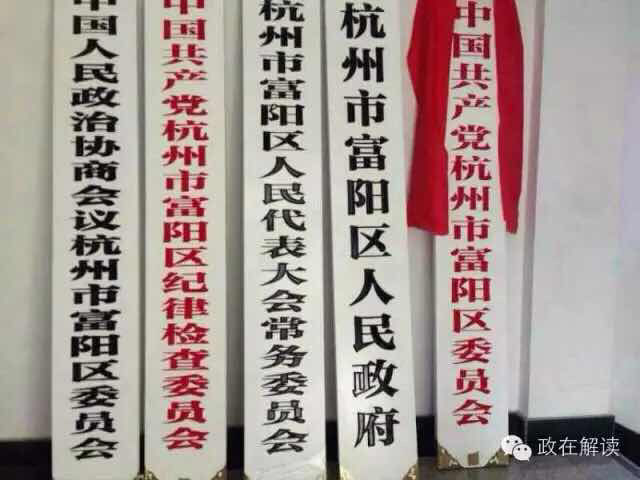 中国人民政治协商会议杭州市富阳区委员会
中国共产党杭州市富阳区纪律检查委员会
杭州市富阳区人民代表大会常务委员会
杭州市富阳区人民政府
中国共产党杭州市富阳区委员会
政在解读